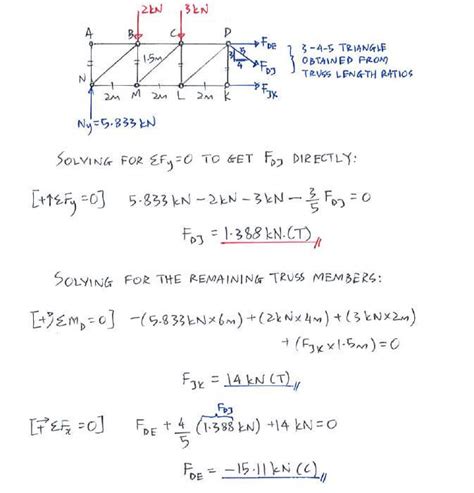 2kN 3kN
A B C D F_DE
1.5m 3 5 4 F_DJ
N M L K F_JK
2m 2m 2m
3-4-5 TRIANGLE
OBTAINED FROM
TRUSS LENGTH RATIOS
Ny=5.833kN
SOLVING FOR ΣFy=0 TO GET F_DJ DIRECTLY:
[+↑ΣFy=0] 5.833kN-2kN-3kN-3/5 F_DJ=0
F_DJ = 1.388kN.(T)//
SOLVING FOR THE REMAINING TRUSS MEMBERS:
[+↺ΣM_D=0] -(5.833kN×6m)+(2kN×4m)+(3kN×2m)
+(F_JK×1.5m)=0
F_JK = 14kN(T)//
F_DJ
[→+ΣFx=0] F_DE + 4/5 (1.388kN) +14kN=0
F_DE = -15.11kN(C)//